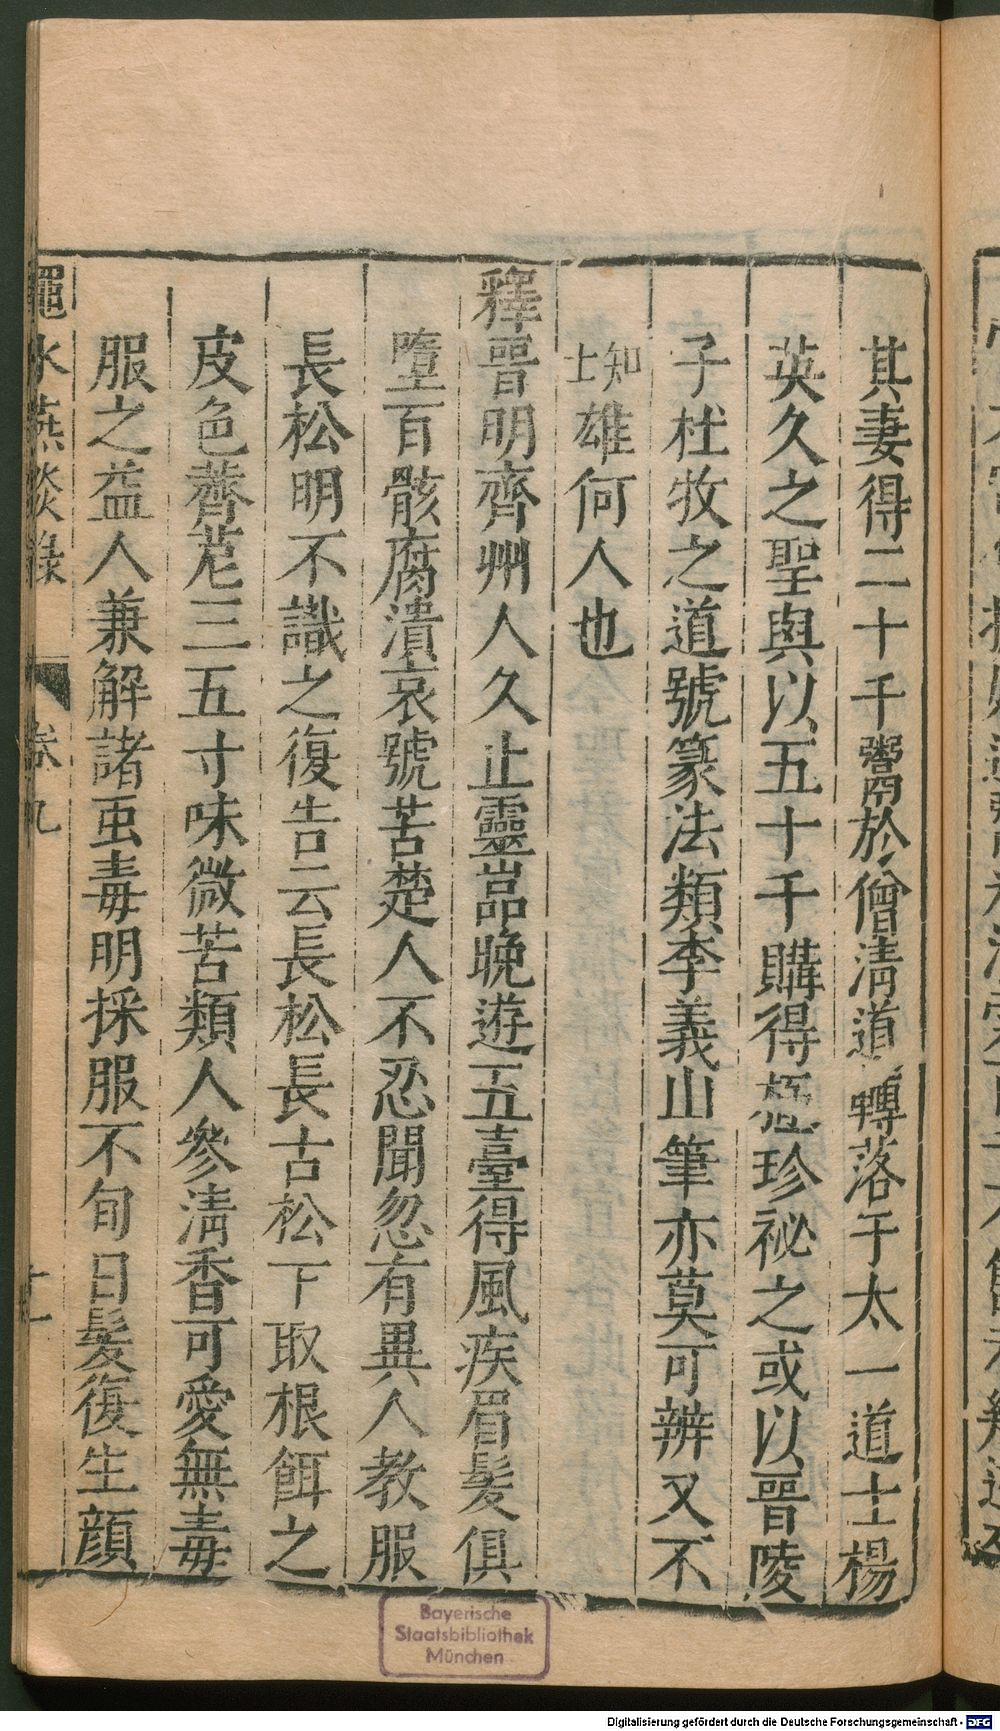 其妻得二十千鬻於僧清道轉落于太一道士楊
英久之聖與以五十千購得極珍祕之或以晉陵
子杜牧之道號篆法類李義山筆亦莫可辨又不
知士雄何人也
釋晉明齊州人久止靈岩晚遊五臺得風疾眉髮俱
墮百骸腐潰哀號苦楚人不忍聞忽有異人教服
長松明不識之復告云長松長古松下取根餌之
皮色薺苨三五寸味微苦類人參清香可愛無毒
服之益人兼解諸虫毒明採服不旬日髮復生顔
澠水燕談錄 卷九
Bayerische
Staatsbibliothek
München
Digitalisierung gefördert durch die Deutsche Forschungsgemeinschaft - DFG